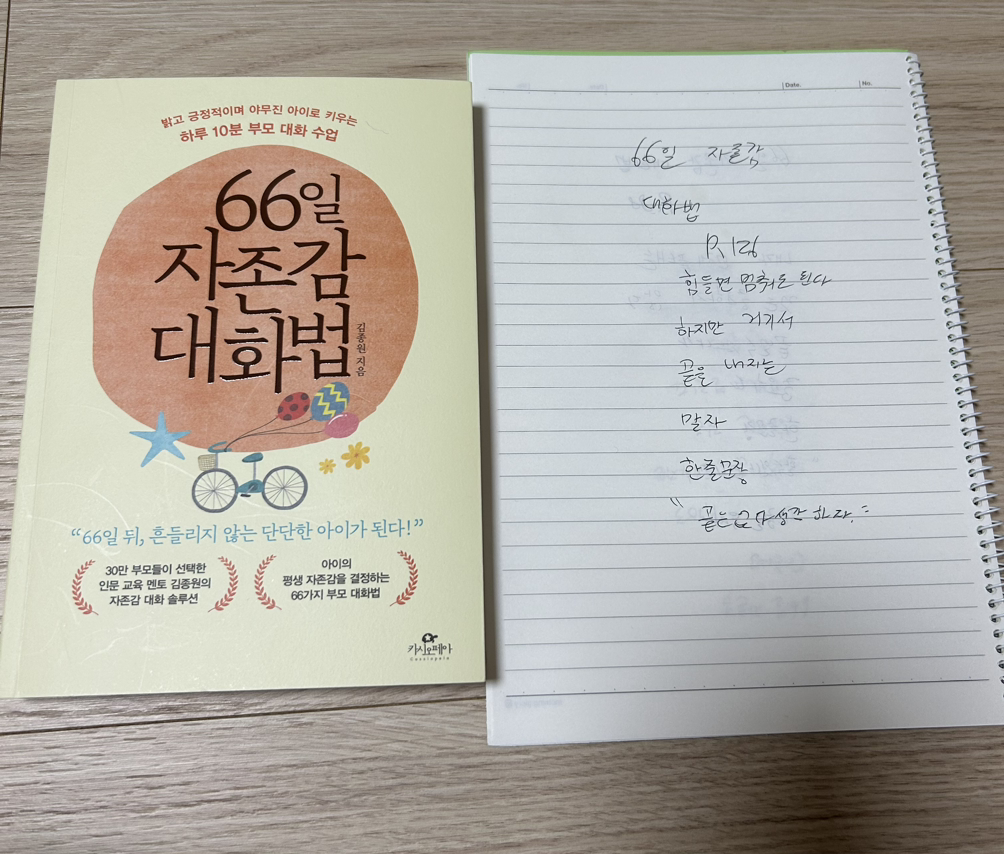 밝고 긍정적이며 야무진 아이로 키우는
하루 10분 부모 대화 수업
66일
자존감
대화법
김종원 지음
“66일 뒤, 흔들리지 않는 단단한 아이가 된다!”
30만 부모들이 선택한
인문 교육 멘토 김종원의
자존감 대화 솔루션
아이의
평생 자존감을 결정하는
66가지 부모 대화법
카시오페아
Cassiopeia
Date.
No.
66일 자존감
대화법
힘들면 멈춰도 된다
하지만 거기서
끝을 내지는
말자
한줄문장